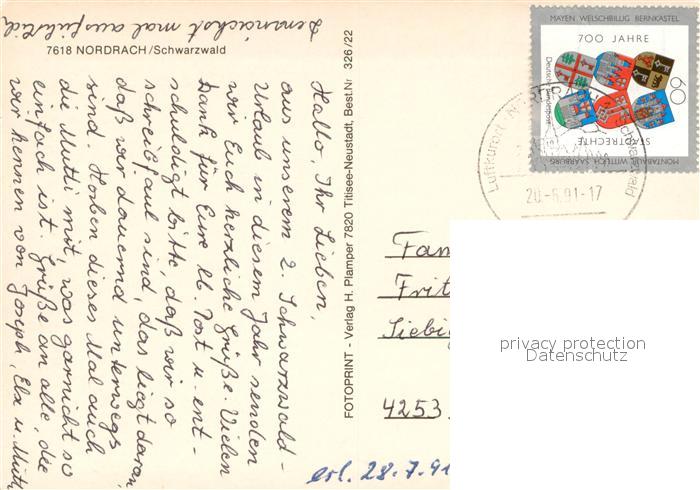 7618 NORDRACH/Schwarzwald
Hallo, Ihr Lieben,
aus unserem 2. Schwarzwald-
Urlaub in diesem Jahr senden
wir Euch herzliche Grüße. Vielen
Dank für Eure lb. Post u. ent-
schuldigt bitte, daß wir so
schreibfaul sind, das liegt daran,
daß wir dauernd unterwegs
sind. Haben dieses Mal auch
die Mutti mit, was garnicht so
einfach ist. Grüße an alle, die
wir kennen von Joseph, Elx u. Mutti
Demnächst mal ausführlich
FOTOPRINT - Verlag H. Plamper 7820 Titisee-Neustadt, Best.Nr 326/22
MAYEN WELSCHBILLIG BERNKASTEL
700 JAHRE
60
Deutsche Bundespost
STADTRECHTE
MONTABAUR WITTLICH SAARBURG
Luftkurort
Schwarzwald
20.-6.91-17
Fam
Frit
Siebig
4253
erl. 28.7.91
privacy protection
Datenschutz